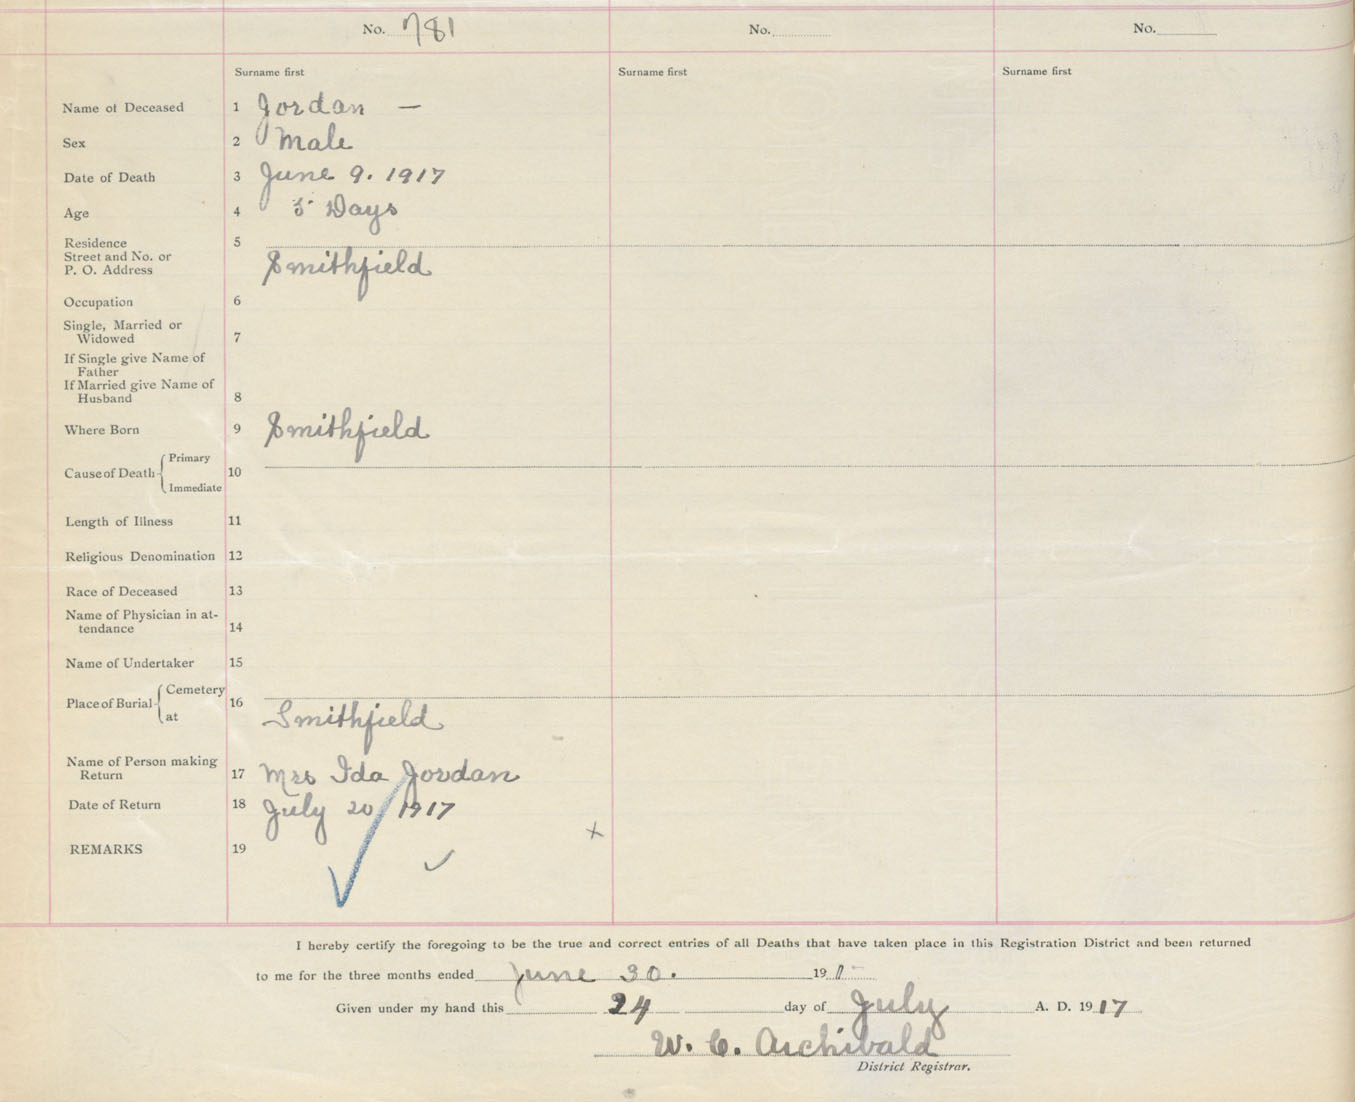 No. 781 No. No.
Surname first Surname first Surname first
Name of Deceased 1 Jordan —
Sex 2 Male
Date of Death 3 June 9. 1917
Age 4 5 Days
Residence 5
Street and No. or
P. O. Address Smithfield
Occupation 6
Single, Married or
Widowed 7
If Single give Name of
Father
If Married give Name of
Husband 8
Where Born 9 Smithfield
Cause of Death Primary 10
Immediate
Length of Illness 11
Religious Denomination 12
Race of Deceased 13
Name of Physician in at-
tendance 14
Name of Undertaker 15
Place of Burial Cemetery 16
at Smithfield
Name of Person making
Return 17 Mrs Ida Jordan
Date of Return 18 July 20 1917
REMARKS 19
I hereby certify the foregoing to be the true and correct entries of all Deaths that have taken place in this Registration District and been returned
to me for the three months ended June 30. 191
Given under my hand this 24 day of July A. D. 1917
W. C. Archibald
District Registrar.